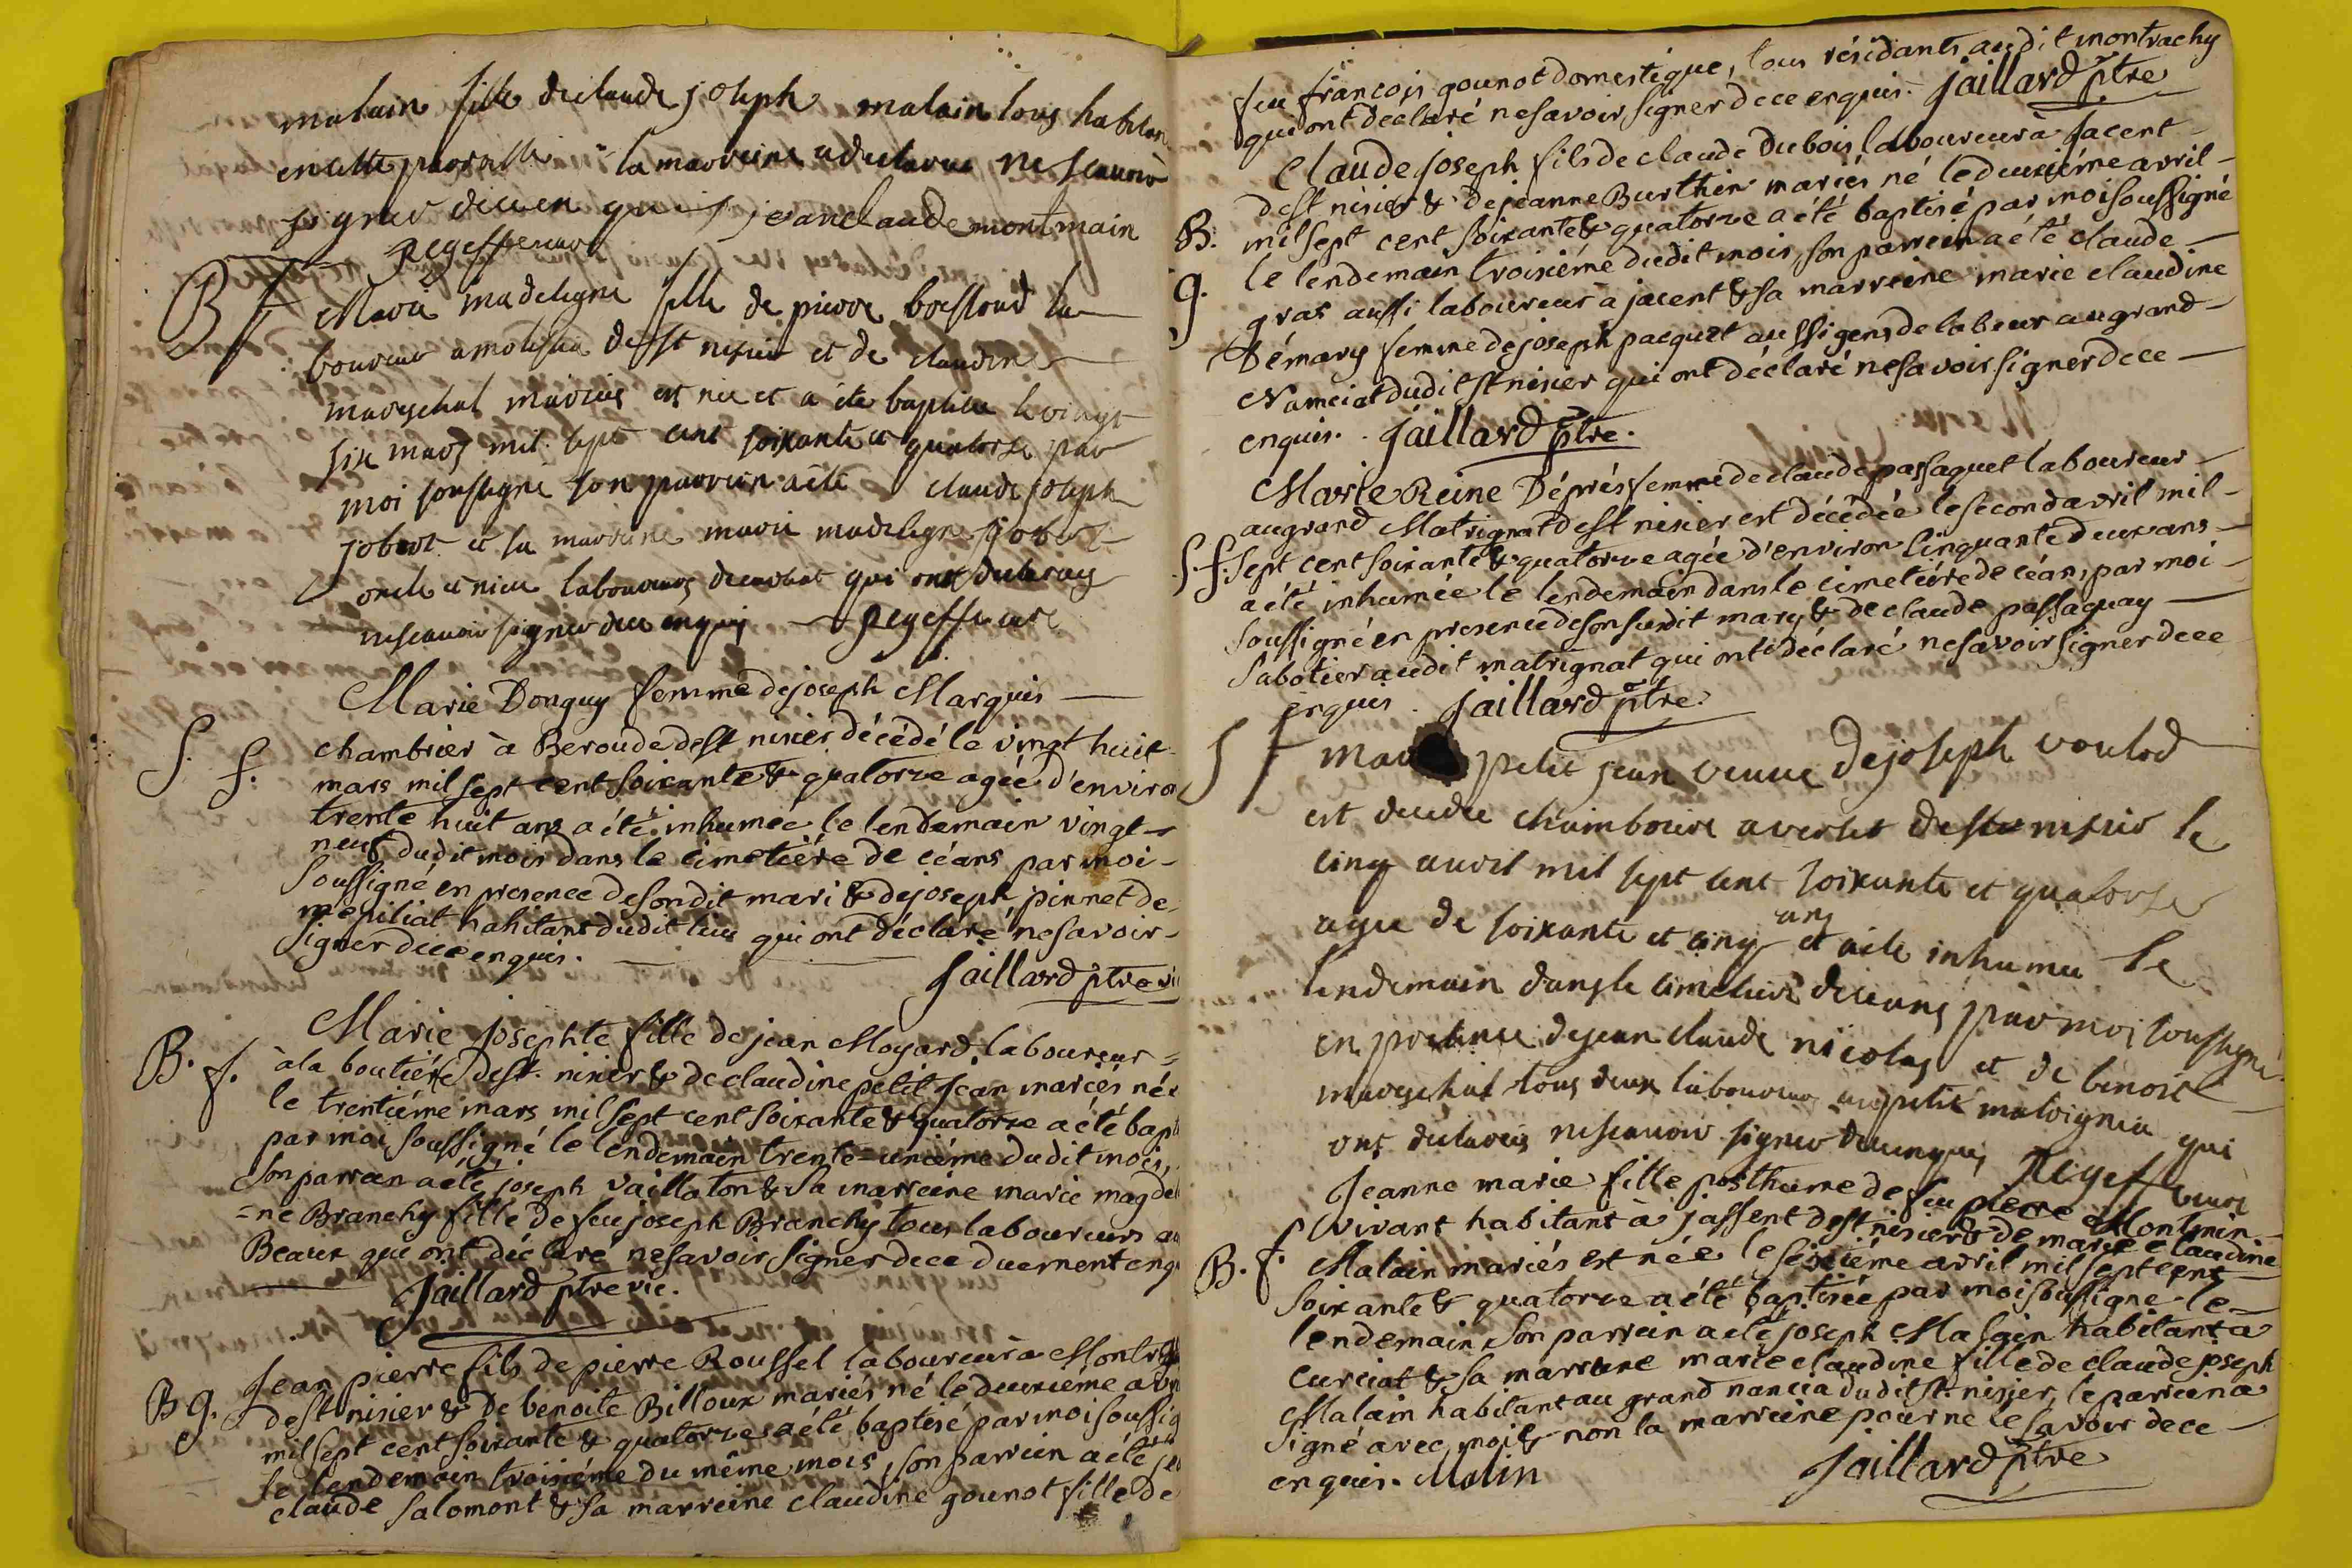 malain fille de claude joseph malain tous habitan
en cette parroisse la marreine a declaree ne scauoir
signer de ce enquis jean claude montmain
regeffe cure
B f Marie madelegne fille de pierre boessoud la
boureur a molisia de st nisier et de claudine
mareschal mariés est nee et a éte baptisee le vingt
six mars mil sept cent soixante et quatorse par
moi soussigné son parrein a éte claude joseph
jobert et sa marreine marie madelegne jobert
oncle et niece laboureurs de curciat qui ont declarés
ne scauoir signer de ce enquis regeffe cure
Marie Donguy femme de joseph Marquis
S. f. chambrier à Beroude de st nisier décédé le vingt huit
mars mil sept cent soixante & quatorze agée d'environ
trente huit ans a été inhumée le lendemain vingt
neuf dudit mois dans le cimetiére de céans par moi
soussigné en presence de son dit mari & de joseph pinnet de
mepiliat habitans dudit lieu qui ont déclaré ne savoir
signer de ce enquis.
jaillard ptre vi
Marie josephte fille de jean Moyard laboureur
B. f. à la boutiére de st. nisier & de claudine petit jean mariés née
le trentiéme mars mil sept cent soixante & quatorze a été bapt
par moi soussigné le lendemain trente=uniéme dudit mois,
son parrein a été joseph vaillaton & sa marreine marie magde
=ne Branchy fille de feu joseph Branchy tous laboureurs au
Beaux qui ont déclaré ne savoir signer de ce duement enq
jaillard ptre vic.
Jean pierre fils de pierre Roussel laboureur à Montr
B g. de st nisier & de benoite Billoux mariés né le deuxieme avr
mil sept cent soixante & quatorze a été baptisé par moi soussig
le lendemain troisiéme du même mois, son parrein a été je
claude salomont & sa marreine claudine gounot fille de
feu françois gounot domestique, tous résidants audit montrachy
qui ont declaré ne savoir signer de ce enquis. jaillard ptre
Claude joseph fils de claude Dubois laboureur à jacent
de st nisier & de jeanne Burthin mariés né le deuxiéme avril
B. mil sept cent soixante & quatorze a été baptisé par moi soussigné
g. le lendemain troisiéme dudit mois, son parrein a été claude
gras aussi laboureur à jacent & sa marreine marie claudine
Démary femme de joseph pacquet aussi gens de labeur au grand
Nanciat dudit st nisier qui ont déclaré ne savoir signer de ce
enquis. jaillard ptre.
Marie Reine Déprés femme de claude passaquet laboureur
au grand Matrignat de st nisier est décédée le second avril mil
S. f. sept cent soixante & quatorze agée d'environ cinquante deux ans
a été inhumée le lendemain dans le cimetiére de céans, par moi
soussigné en presence de son susdit mary & de claude passaquay
sabotier audit matrignat qui ont déclaré ne savoir signer de ce
enquis. jaillard ptre.
S f petit jean veuve de joseph voulod
est decedee chambriere a de st nisier le
cinq auril mil sept cent soixante et quatorse
agee de soixante et cinq ans et a éte inhumee le
lendemain dans le cimetiere de ceans par moi soussigné
en presence de jean claude nicolas et de benoit
mareschal tous deux laboureur au petit matrignia qui
ont declarés ne scauoir signer de ce enquis regeffe cure
Jeanne marie fille posthume de feu pierre Montmin
vivant habitant à jassent de st nisier & de marie claudine
B. f. Malain mariés est née le sixiéme avril mil sept cent
soixante & quatorze a été baptisée par moi soussigné le
lendemain son parrein a été joseph Malain habitant a
curciat & sa marreine marie claudine fille de claude joseph
Malain habitant au grand nancia dudit st. nisier, le parrein a
signé avec moi & non la marreine pour ne le savoir de ce
enquis. Malin jaillard ptre